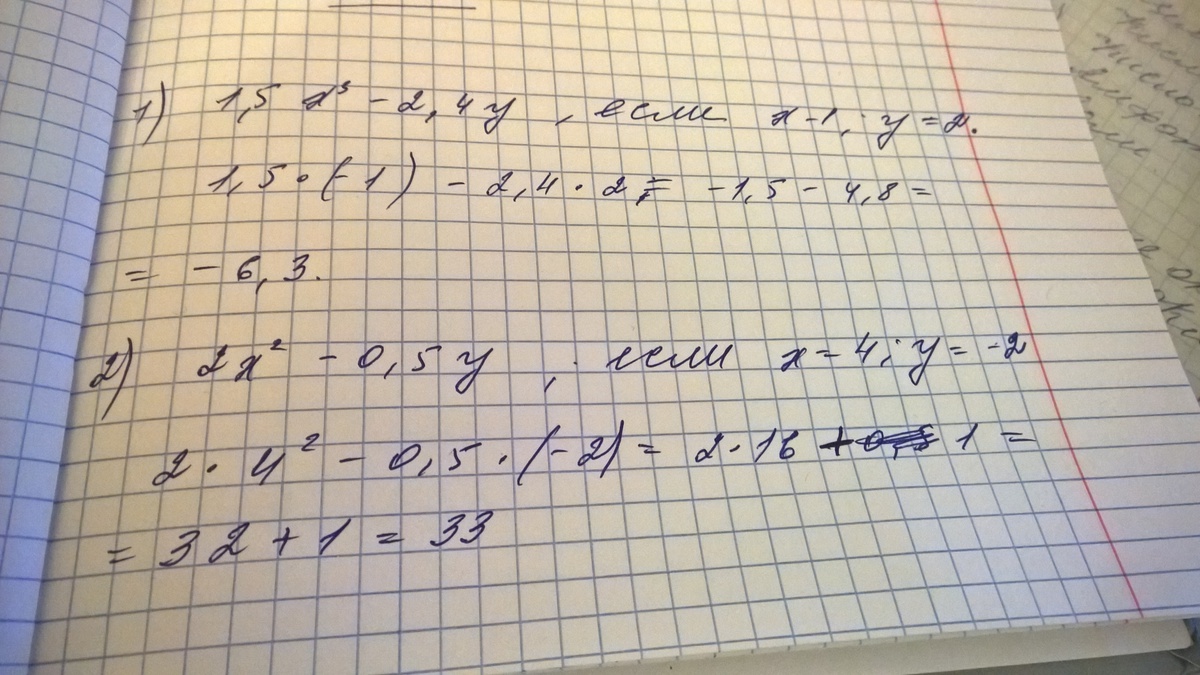 1) 1,5 x³ - 2,4 y , если x-1, y = 2.
1,5 · (-1) - 2,4 · 2 = -1,5 - 4,8 =
= - 6,3.
2) 2x² - 0,5 y , если x - 4; y = -2
2 · 4² - 0,5 · (-2) = 2 · 16 + 1 =
= 32 + 1 = 33